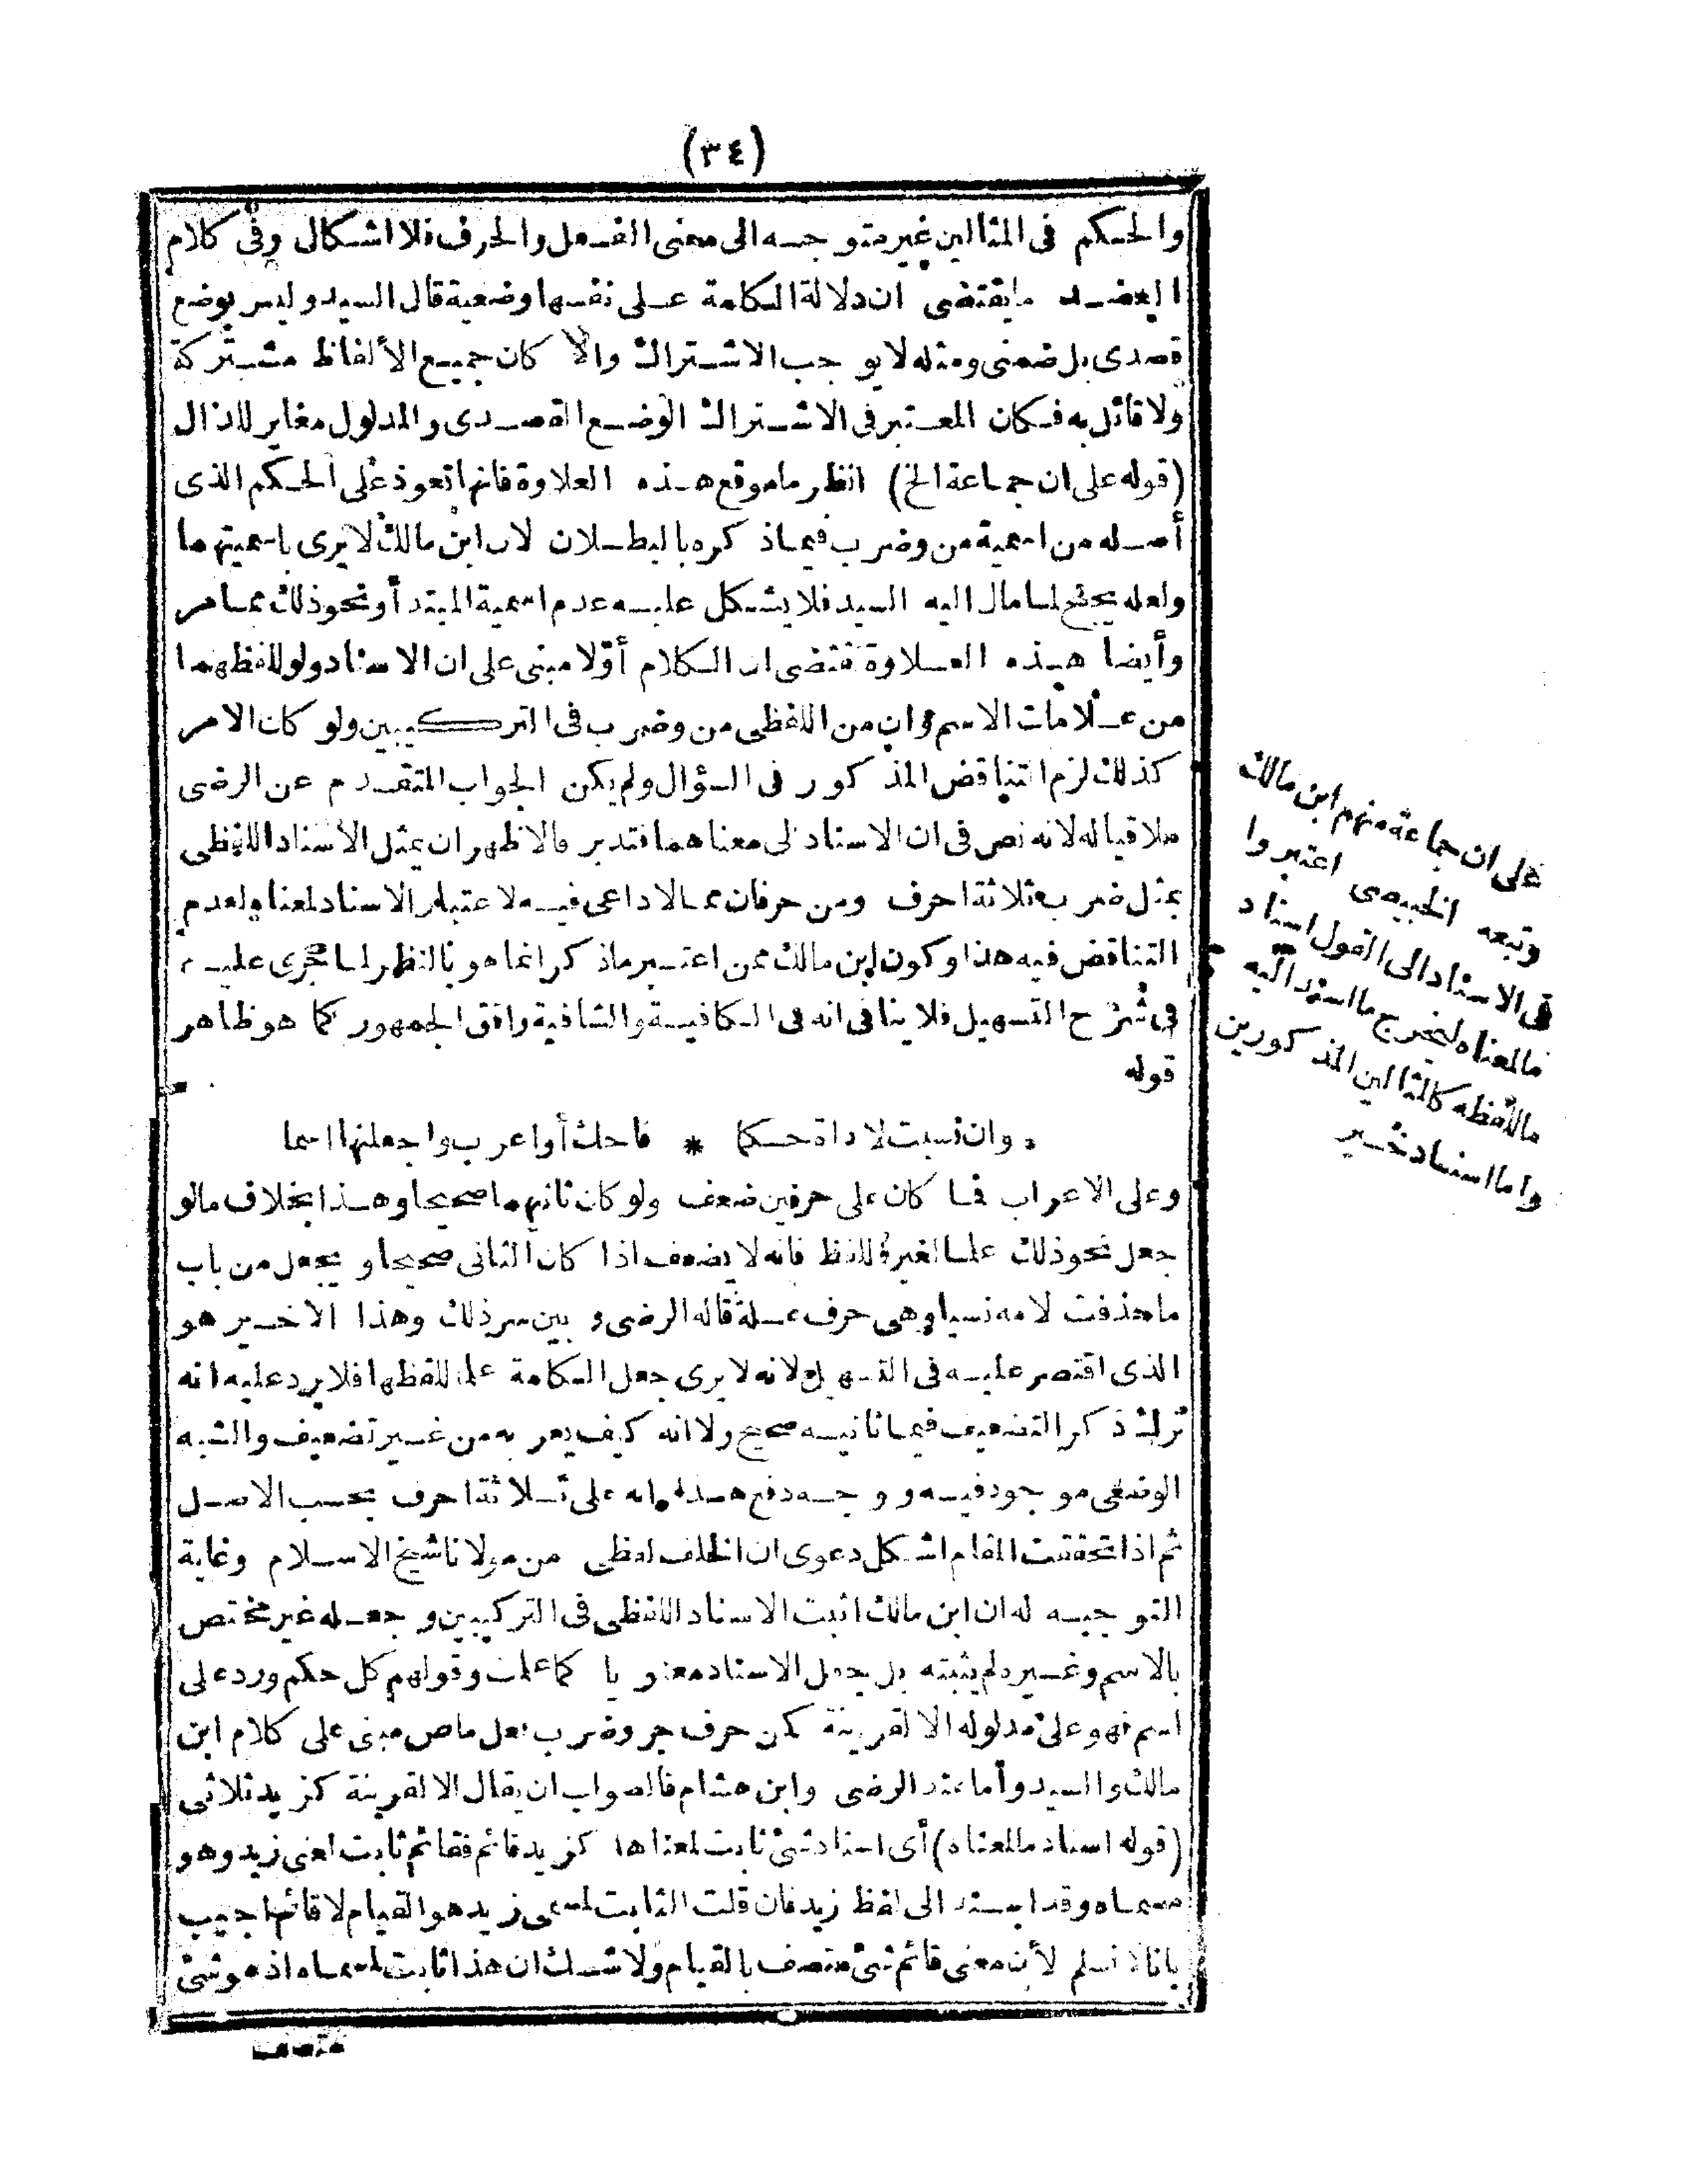 (٣٤)
والحكم فى المثالين غير متوجه الى معنى الفعل والحرف فلا اشكال وفى كلام
العضد ما يقتضى ان دلالة الكلمة على نفسها وضعية قال السيد وليس بوضع
قصدى بل ضمنى ومثله لا يوجب الاشتراك والا كان جميع الألفاظ مشتركة
ولا قائل به فكان المعتبر فى الاشتراك الوضع القصدى والمدلول مغاير للدال
(قوله على ان جماعة الخ) انظر ما موقع هذه العلاوة فانها تعود على الحكم الذى
أصله من اسمية من وضرب فيما ذكره بالبطلان لان ابن مالك لا يرى باسميتهما
ولعله يجنح لما مال اليه السيد فلا يشكل عليه عدم اسمية المبتدأ ونحو ذلك مما مر
وأيضا هذه العلاوة تقتضى ان الكلام أولا مبنى على ان الاسناد ولو للفظهما
من علامات الاسم وان من اللفظى من وضرب فى التركيبين ولو كان الامر
كذلك لزم التناقض المذكور فى السؤال ولم يكن الجواب المتقدم عن الرضى
ملاقيا له لانه نص فى ان الاسناد الى معناهما فتدبر فالاظهر ان يمثل الاسناد اللفظى
بمثل ضرب ثلاثة احرف ومن حرفان مما لا داعى فيه لاعتبار الاسناد لمعناه ولعدم
التناقض فيه هذا وكون ابن مالك ممن اعتبر ما ذكر انما هو بالنظر لما جرى عليه
فى شرح التسهيل فلا ينافى انه فى الكافية والشافية وافق الجمهور كما هو ظاهر
قوله
وان نسبت لاداة حكما * فاحك أو اعرب واجعلنها اسما
وعلى الاعراب فما كان على حرفين ضعف ولو كان ثانيهما صحيحا وهذا بخلاف ما لو
جعل نحو ذلك علما لغير اللفظ فانه لا يضعف اذا كان الثانى صحيحا ويجعل من باب
ما حذفت لامه نسيا وهى حرف علة قاله الرضى وبين سر ذلك وهذا الاخير هو
الذى اقتصر عليه فى التسهيل لانه لا يرى جعل الكلمة علما للفظها فلا يرد عليه انه
ترك ذكر التضعيف فيما ثانيه صحيح ولا انه كيف يعر به من غير تضعيف والشبه
الوضعى موجود فيه ووجه دفع هذا انه على ثلاثة احرف بحسب الاصل
ثم اذا تحققت المقام اشكل دعوى ان الخلف لفظى من مولانا شيخ الاسلام وغاية
التوجيه له ان ابن مالك اثبت الاسناد اللفظى فى التركيبين وجعله غير مختص
بالاسم وغيره لم يثبته بل يجعل الاسناد معنويا كما علمت وقولهم كل حكم ورد على
اسم فهو على مدلوله الا لقرينة كمن حرف جر وضرب فعل ماض مبنى على كلام ابن
مالك والسيد وأما عند الرضى وابن هشام فالصواب ان يقال الا لقرينة كزيد ثلاثى
(قوله اسناد ما لمعناه) أى اسناد شئ ثابت لمعناها كزيد قائم فقائم ثابت لمعنى زيد وهو
مسماه وقد اسند الى لفظ زيد فان قلت الثابت لمسمى زيد هو القيام لا قائم اجيب
بانا لا نسلم لأن معنى قائم شئ متصف بالقيام ولا شك ان هذا ثابت لمسماه اذ هو شئ
متصف
على ان جماعة منهم ابن مالك
وتبعه الخبيصى اعتبروا
فى الاسناد الى القول اسناد
ما لمعناه ليخرج ما اسند اليه
ما للفظه كالمثالين المذكورين
واما اسناد خير